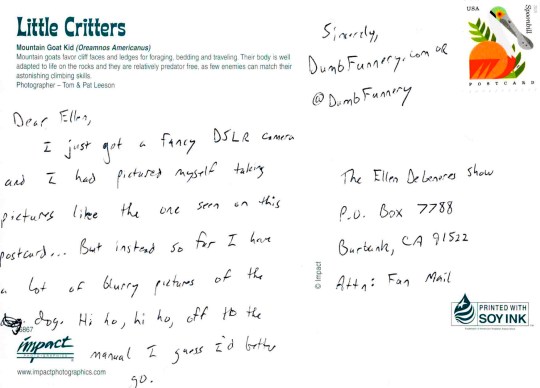 Little Critters
Mountain Goat Kid (Oreamnos Americanus)
Mountain goats favor cliff faces and ledges for foraging, bedding and traveling. Their body is well
adapted to life on the rocks and they are relatively predator free, as few enemies can match their
astonishing climbing skills.
Photographer – Tom & Pat Leeson
Dear Ellen,
I just got a fancy DSLR camera
and I had pictured myself taking
pictures like the one seen on this
postcard... But instead so far I have
a lot of blurry pictures of the
dog. Hi ho, hi ho, off to the
manual I guess I'd better
go.
impact
www.impactphotographics.com
© Impact
Sincerely,
DumbFunnery.com or
@DumbFunnery
USA
Spoonbill
POSTCARD
The Ellen DeGeneres Show
P.O. Box 7788
Burbank, CA 91522
Attn: Fan Mail
PRINTED WITH
SOY INK